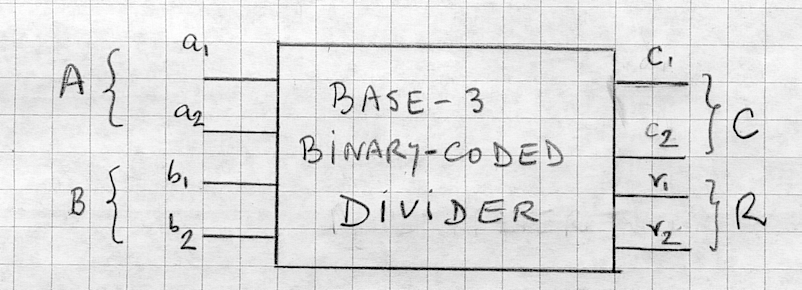 a₁
A {
a₂
b₁
B {
b₂
BASE-3
BINARY-CODED
DIVIDER
c₁
} C
c₂
r₁
} R
r₂